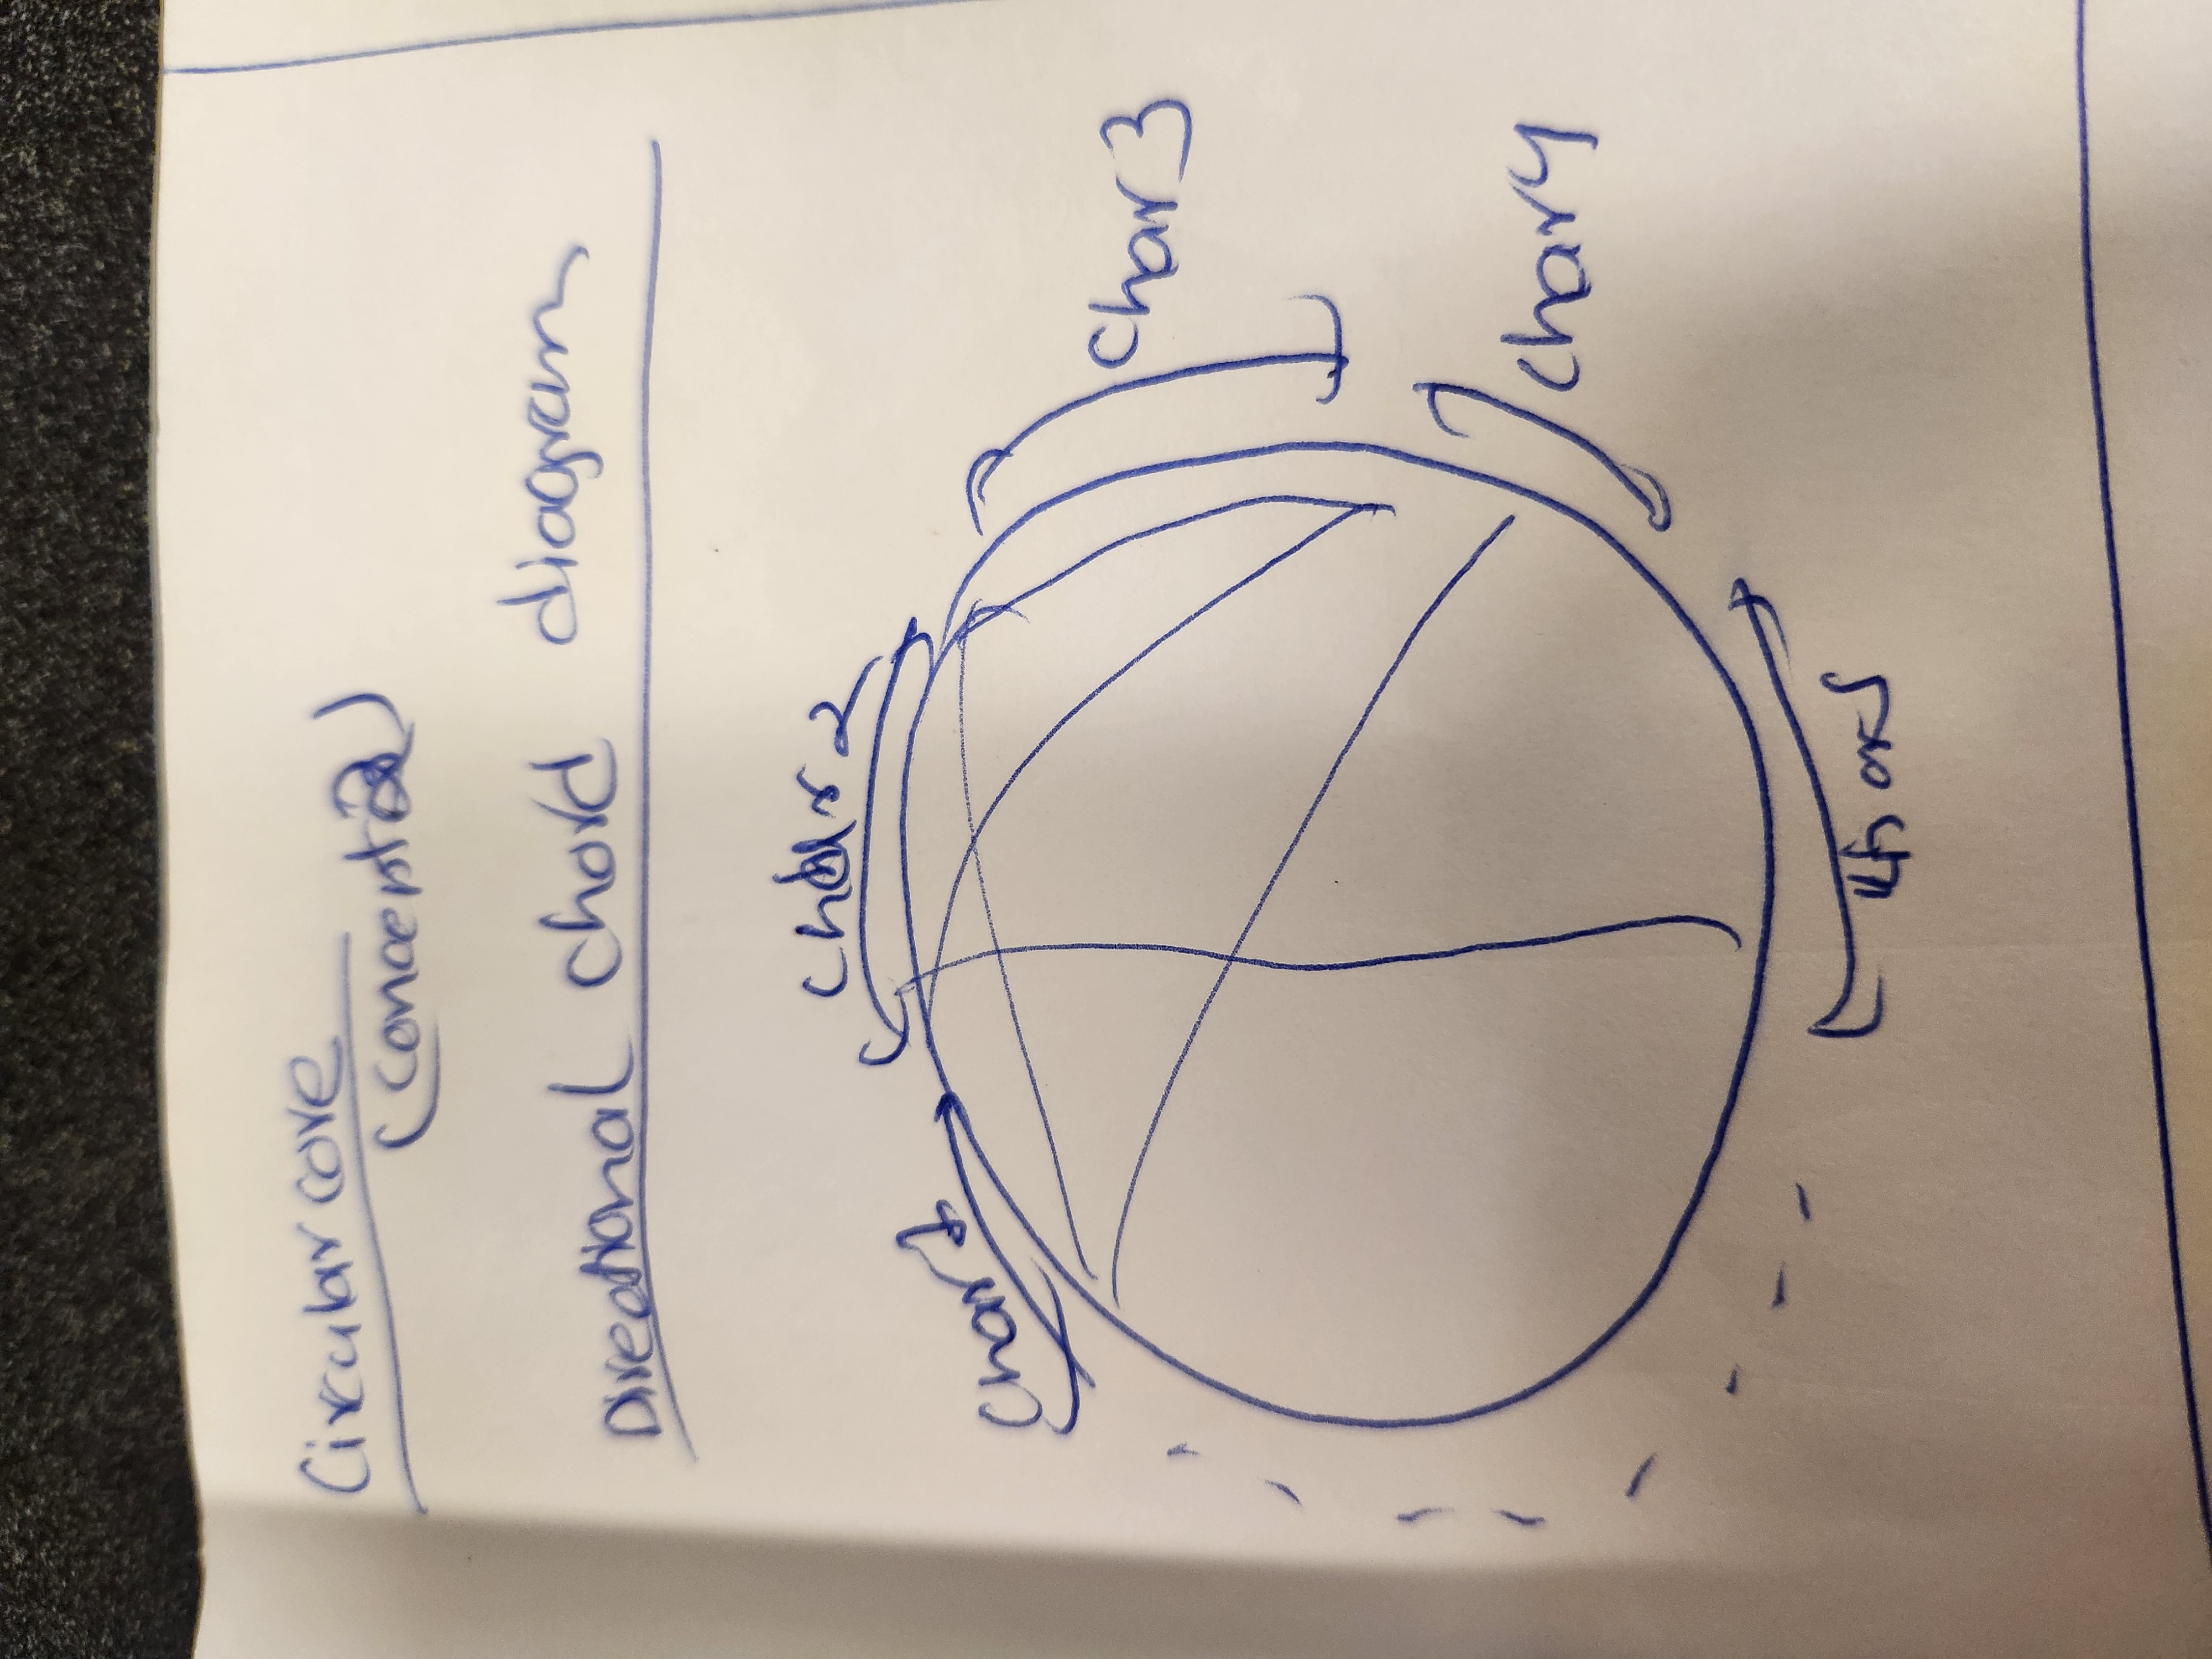 Circular core
(concept 2)
Directional chord diagram
Char 2
Char 1
Char 3
Char 4